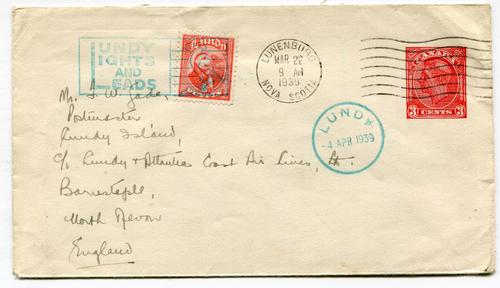 LUNDY
LIGHTS
AND
LEADS
Lundy
LUNENBURG
MAR 22
9 AM
1939
NOVA SCOTIA
CANADA
3 CENTS 3
LUNDY
-4 APR 1939
Mr. F. W. Gade,
Postmaster
Lundy Island,
c/o Lundy & Atlantic Coast Air Lines, Lt.
Barnstaple,
North Devon
England